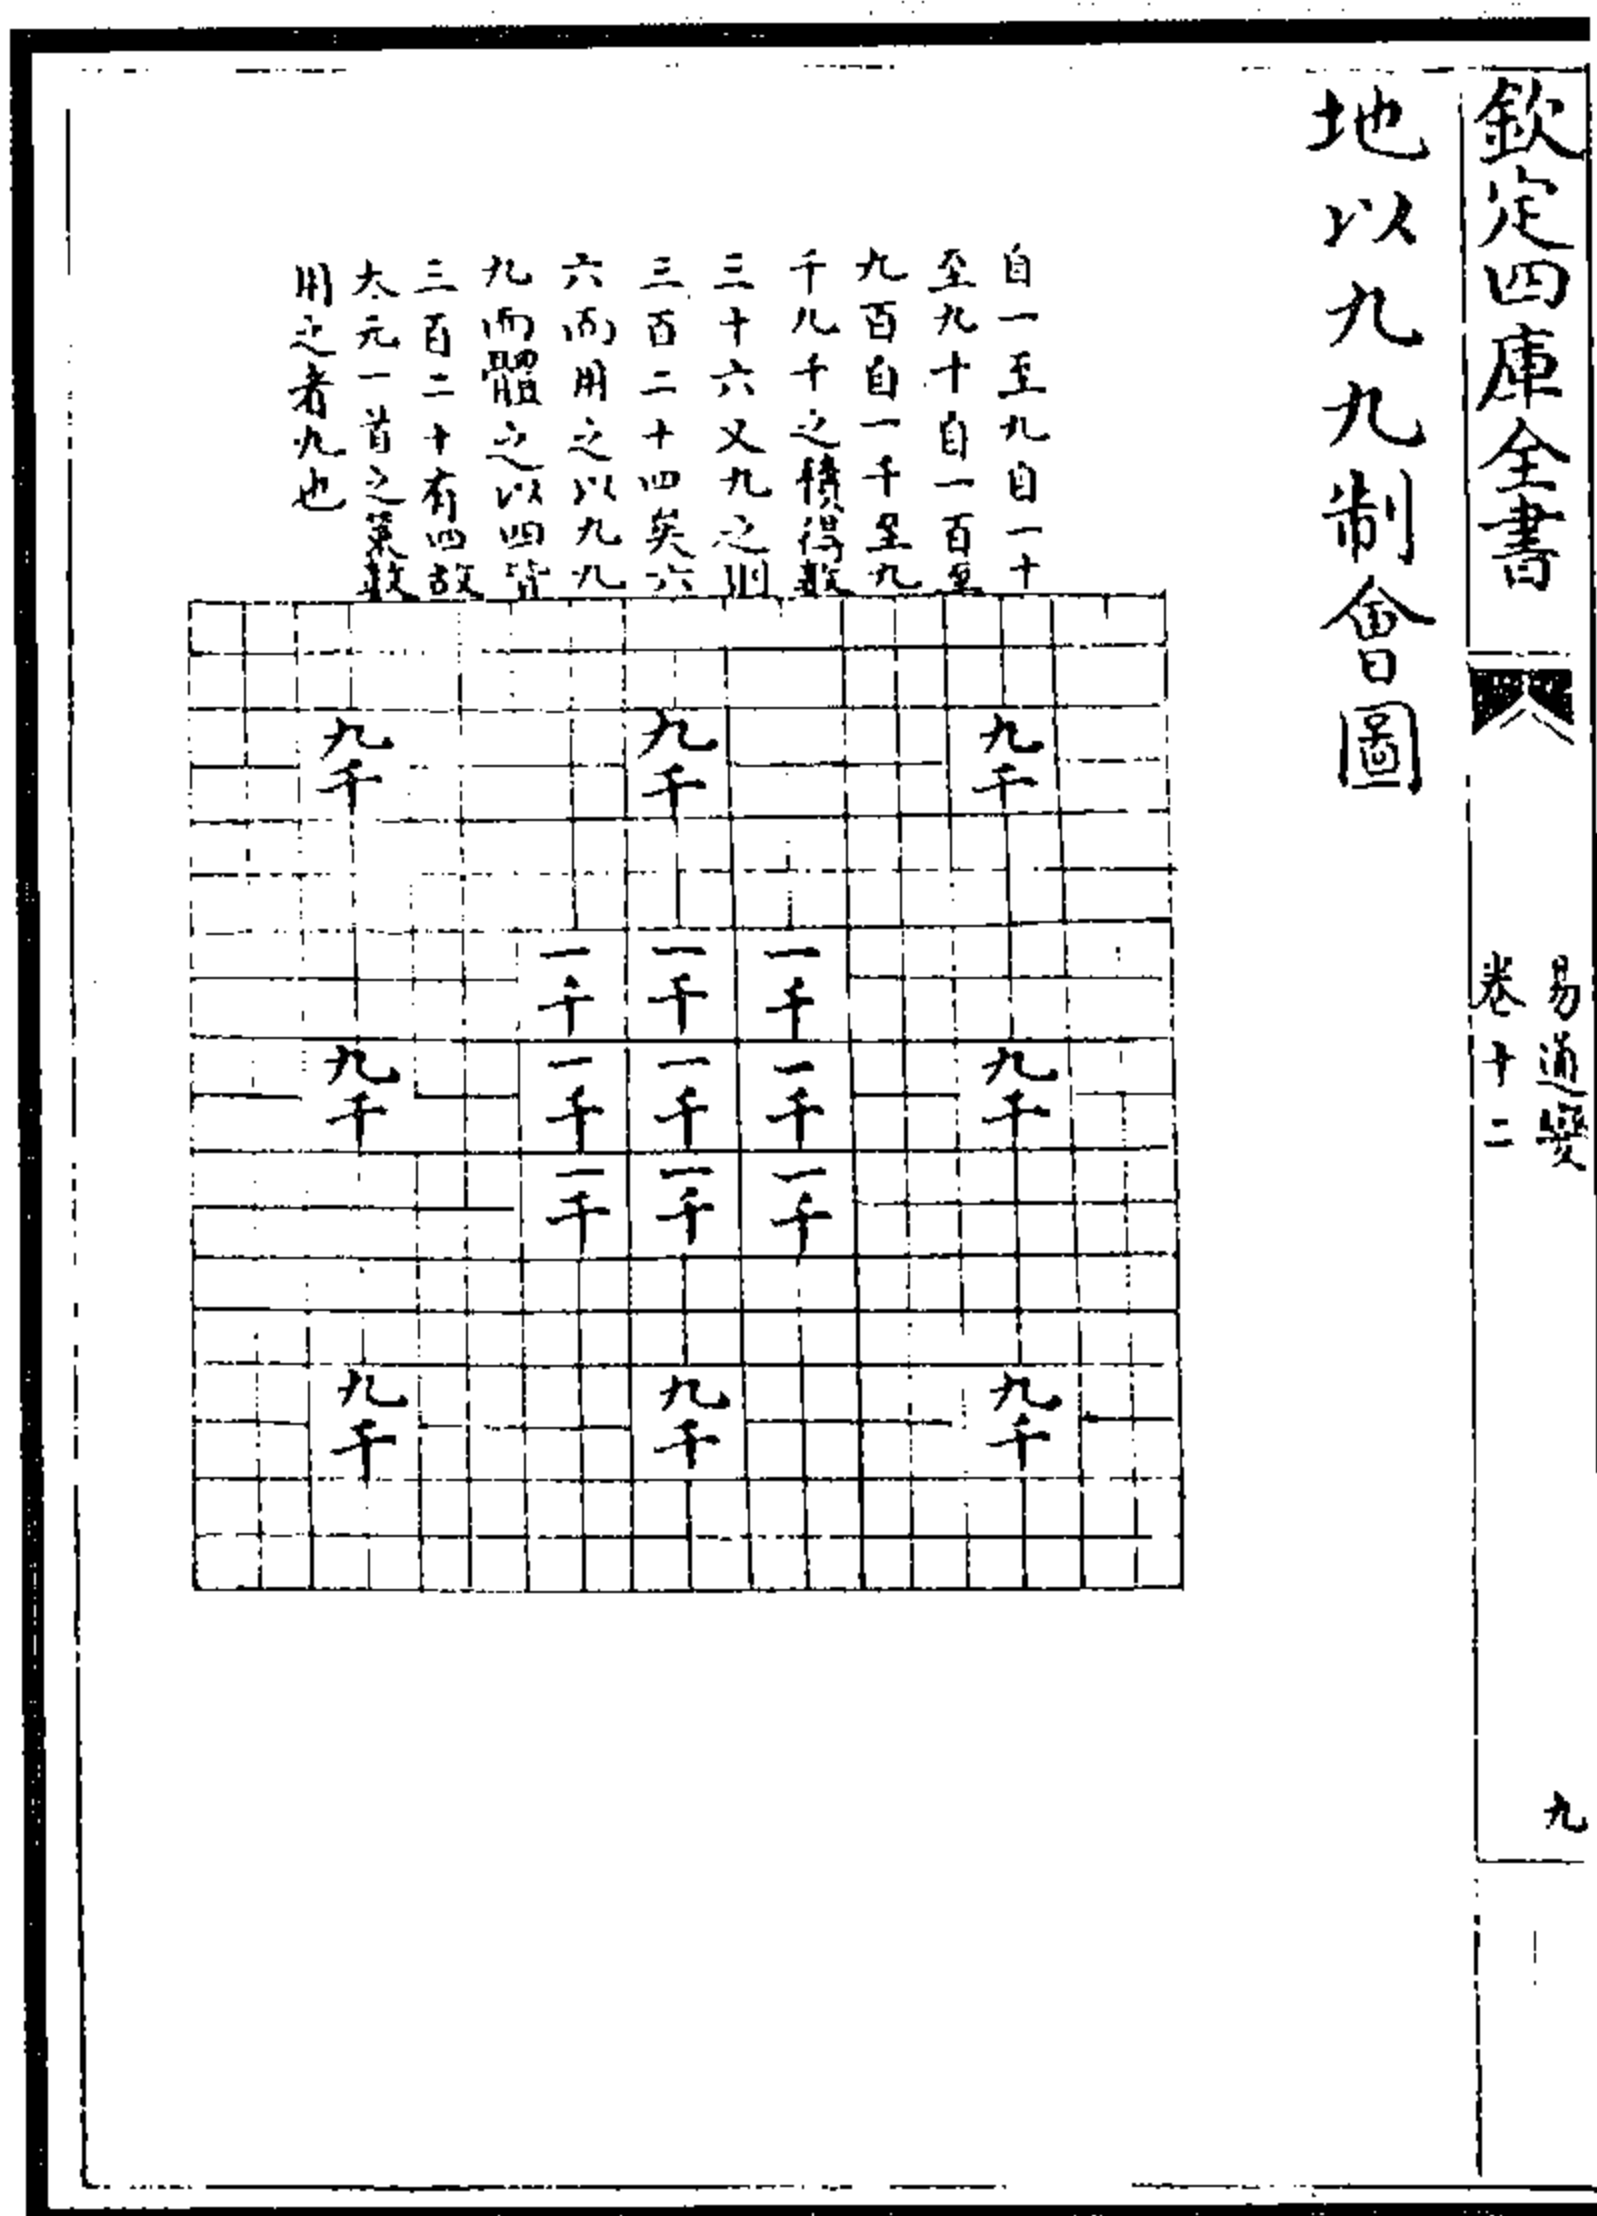 欽定四庫全書
易通變
卷十二
九
地以九九制會圖
自一至九自一十
至九十自一百至
九百自一千至九
千九千之積得數
三十六又九之則
三百二十四矣六
六而用之以九九
九而體之以四皆
三百二十有四故
太元一首之䇿數
用之者九也
九千 九千 九千
一千 一千 一千
九千 一千 一千 一千 九千
一千 一千 一千
九千 九千 九千